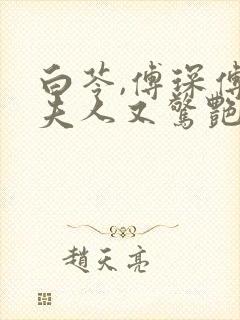 白苓,傅琛傅
夫人又驚艷
趙天亮